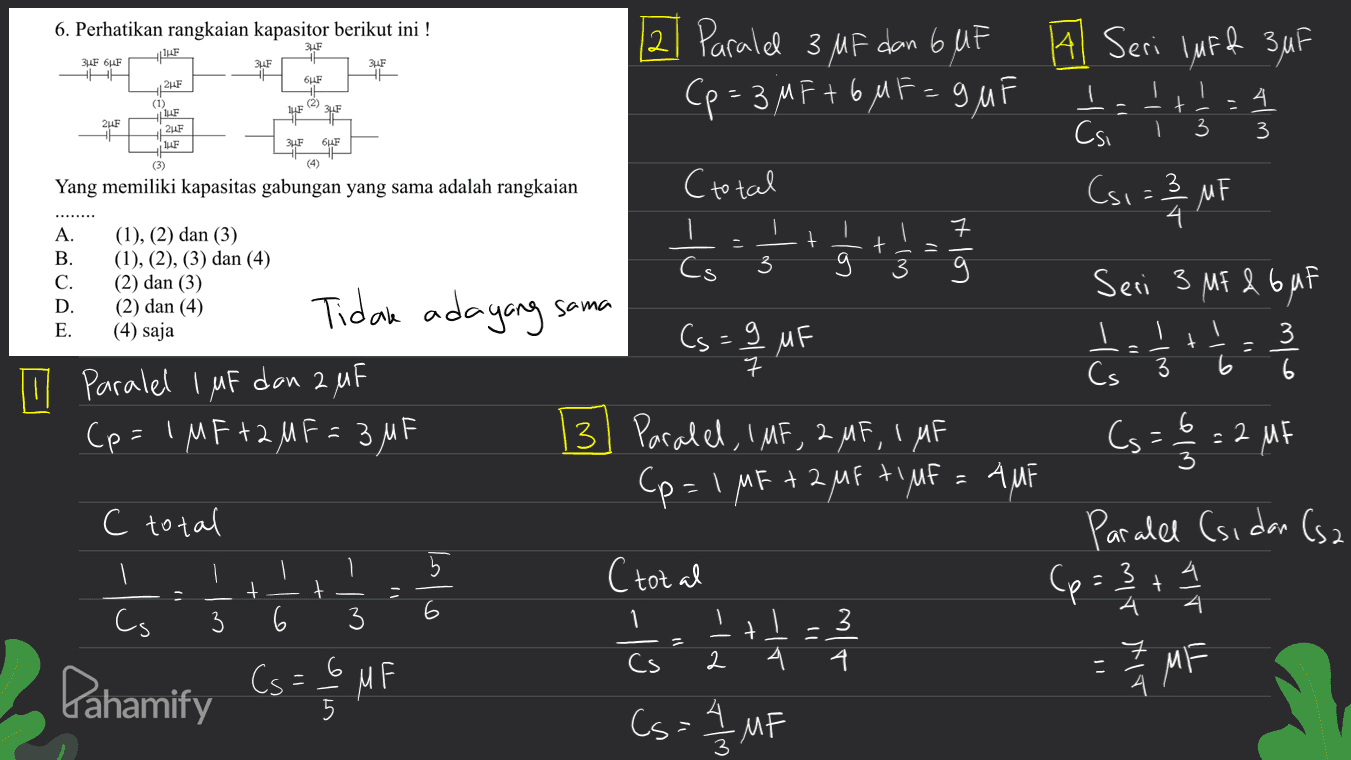 6. Perhatikan rangkaian kapasitor berikut ini !
3μF 6μF 1μF 2μF
(1)
3μF 3μF 6μF 3μF
(2)
2μF 1μF 2μF 1μF
(3)
1μF 3μF 3μF 6μF
(4)
Yang memiliki kapasitas gabungan yang sama adalah rangkaian
........
A. (1), (2) dan (3)
B. (1), (2), (3) dan (4)
C. (2) dan (3)
D. (2) dan (4)
E. (4) saja
Tidak ada yang sama
1 Paralel 1 μF dan 2 μF
Cp = 1 μF + 2 μF = 3 μF
C total
1/Cs = 1/3 + 1/6 + 1/3 = 5/6
Cs = 6/5 μF
2 Paralel 3 μF dan 6 μF
Cp = 3 μF + 6 μF = 9 μF
C total
1/Cs = 1/3 + 1/9 + 1/3 = 7/9
Cs = 9/7 μF
3 Paralel, 1 μF, 2 μF, 1 μF
Cp = 1 μF + 2 μF + 1 μF = 4 μF
C total
1/Cs = 1/2 + 1/4 = 3/4
Cs = 4/3 μF
4 Seri 1 μF & 3 μF
1/Cs1 = 1/1 + 1/3 = 4/3
Cs1 = 3/4 μF
Seri 3 μF & 6 μF
1/Cs = 1/3 + 1/6 = 3/6
Cs = 6/3 = 2 μF
Paralel Cs1 dan Cs2
Cp = 3/4 + 4/4
= 7/4 μF
Pahamify